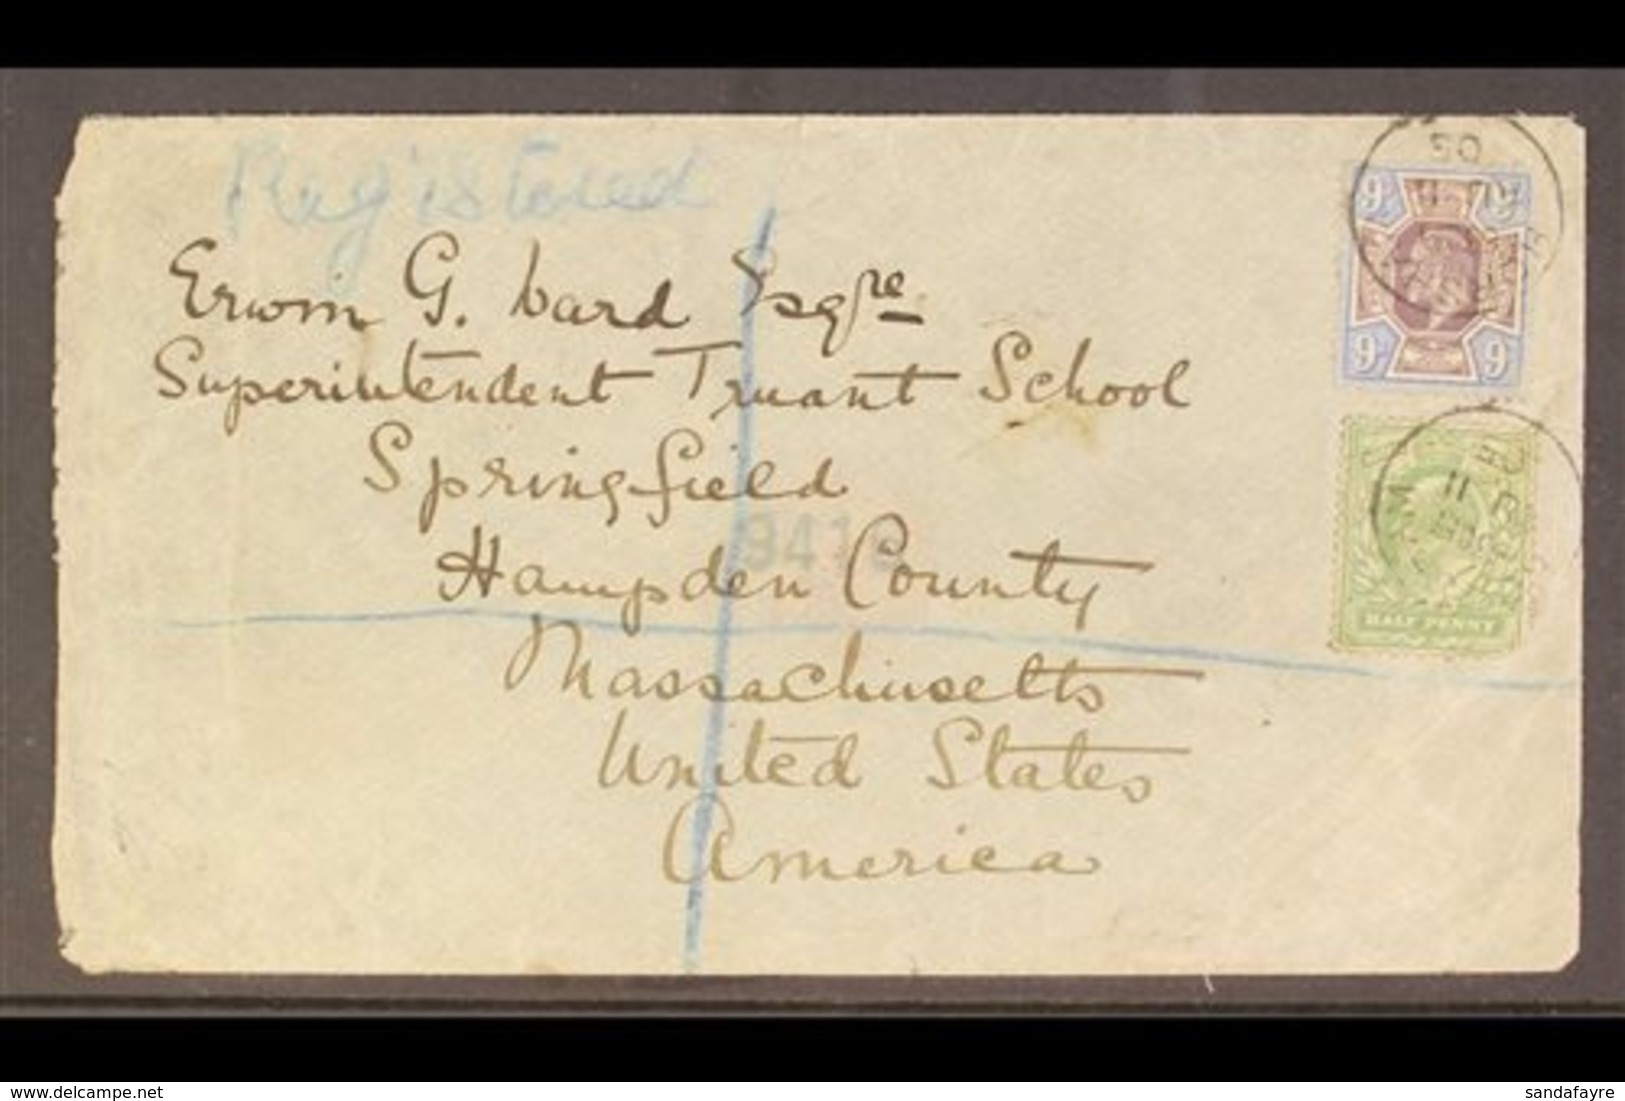 Registered
Erwin G. Ward Esqre
Superintendent Truant School
Springfield
Hampden County
Massachusetts
United States
America
941
9 9
9 9
05
11
HALF PENNY
www.delcampe.net
sandafayre